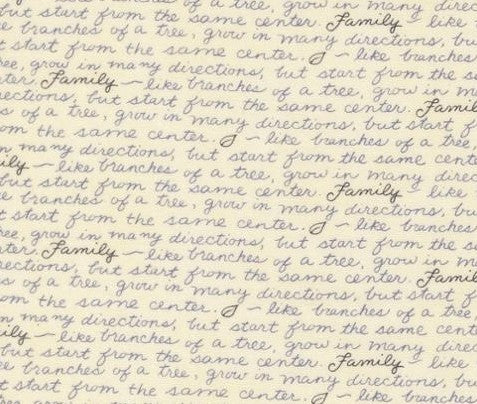 branches of a tree, grow in many direc
but start from the same center. Family ~ like
e branches of a tree, grow in many directions, bu
t start from the same center. ~ like branches
ree, grow in many directions, but start from the sa
ter. Family ~ like branches of a tree, grow in m
ections, but start from the same center. Famil
s of a tree, grow in many directions, but start f
om the same center. ~ like branches of a tree,
n many directions, but start from the same cente
ily ~ like branches of a tree, grow in many direc
but start from the same center. Family ~ like
e branches of a tree, grow in many directions, bu
t start from the same center. ~ like branches
ree, grow in many directions, but start from the sa
ter. Family ~ like branches of a tree, grow in m
ections, but start from the same center. Famil
s of a tree, grow in many directions, but start f
om the same center. ~ like branches of a tree,
n many directions, but start from the same cente
ily ~ like branches of a tree, grow in many direc
but start from the same center. Family ~ like
e branches of a tree, grow in many directions, bu
t start from the same center. ~ like branches